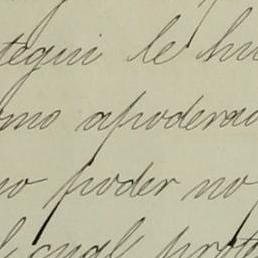 tegui le hu
mo apoderad
no poder no
l cual prot